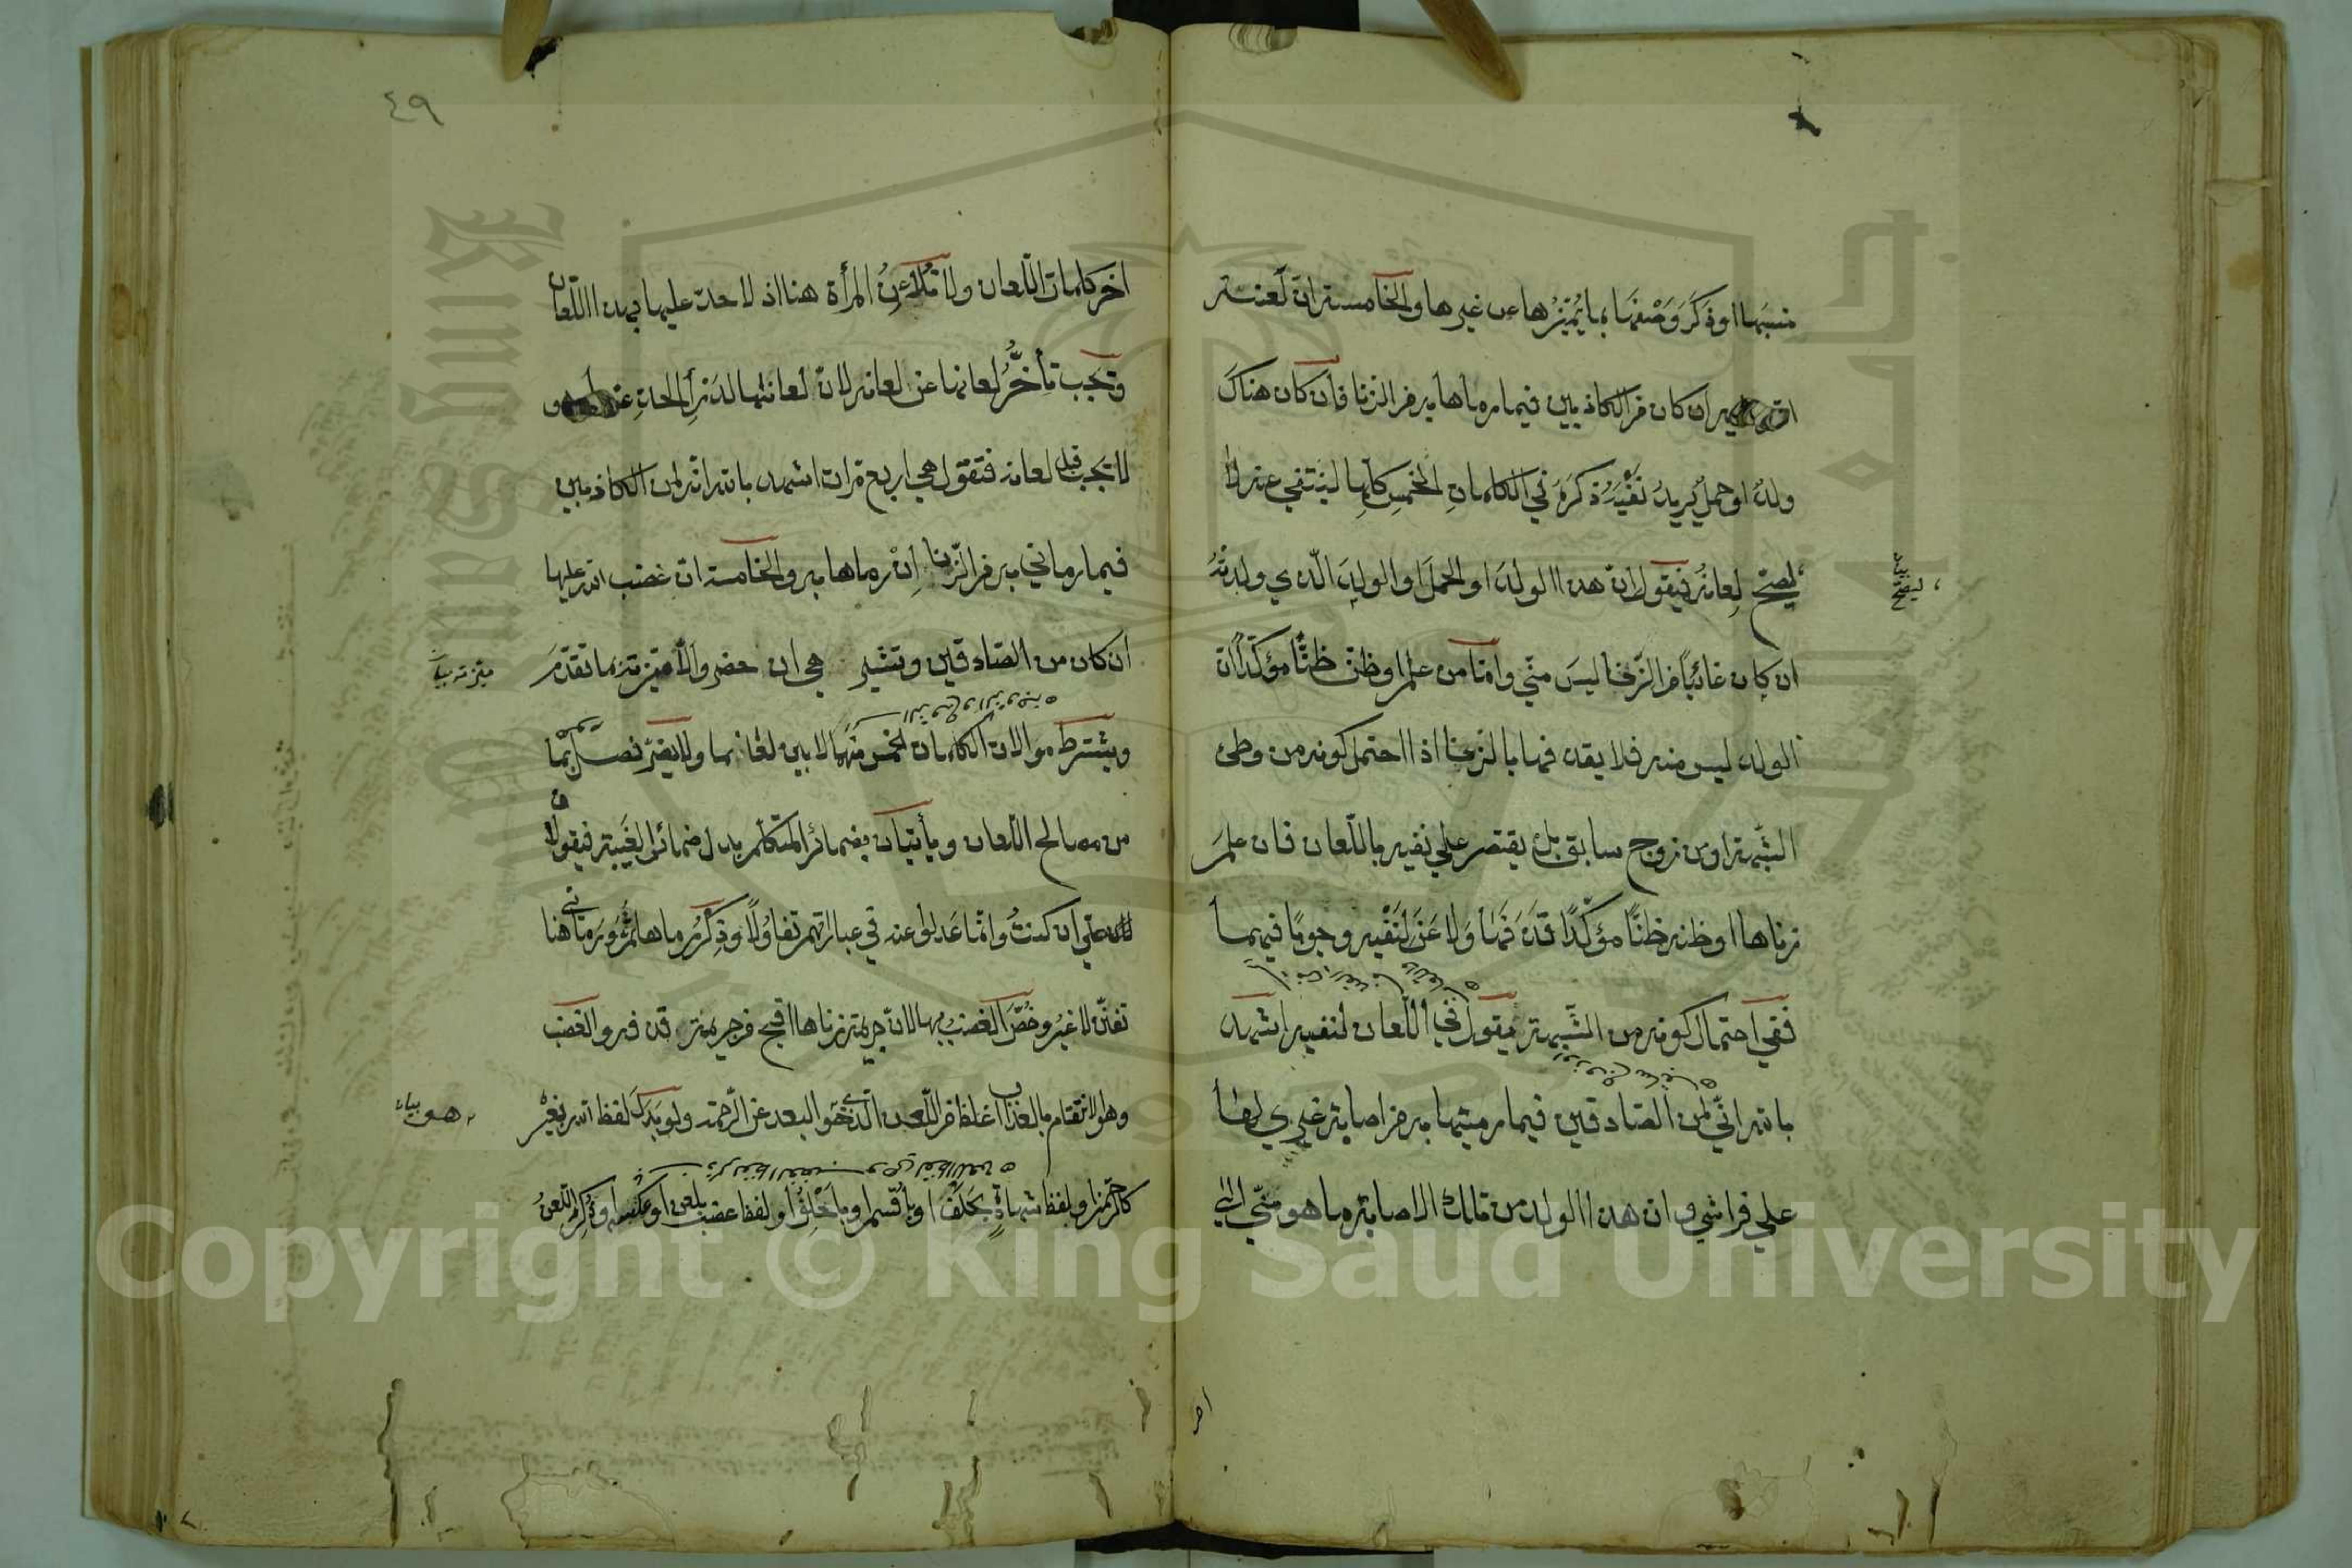 نسبها او ذكر وصفها بما يميزها عن غيرها والخامسة ان لعنة
الله عليه ان كان من الكاذبين فيما رماها به من الزنا فان كان هناك
ولد او حمل يريد نفيه ذكره في الكلمات الخمس كلها لينتفي عنه لا
ليصح لعانه فيقول ان هذا الولد او الحمل او الولد الذي ولدته
ليصح بيان
ان كان غائبا من الزنا ليس مني واما من علم او ظن ظنا مؤكدا ان
الولد ليس منه فلا يقذفها بالزنا اذا احتمل كونه من وطئ
الشبهة او من زوج سابق بل يقتصر علي نفيه باللعان فان علم
زناها او ظنه ظنا مؤكدا قذفها ولاعن لنفيه وجوبا فيهما
ففي احتمال كونه من الشبهة يقول في اللعان لنفيه اشهد
بالله اني لمن الصادقين فيما رميتها به من اصابة غيري لها
علي فراشي وان هذا الولد من تلك الاصابة ما هو مني الي
اخر
٤٩
اخر كلمات اللعان ولا تلاعن المرأة هنا اذ لا حد عليها بهذا اللعان
ويجب تأخر لعانها عن لعانه لان لعانها لدرأ الحد عنها و
لا يجب قبل لعانه فتقول هي اربع مرات اشهد بالله انه لمن الكاذبين
فيما رماني به من الزنا ان رماها به والخامسة ان غضب الله عليها
ان كان من الصادقين وتشير هي ان حضر والا ميزته بما تقدم
ميزته بيان
ويشترط موالات الكلمات الخمس منهما لا بين لعانهما ولا يضر فصل بما
من مصالح اللعان ويأتيان بضمائر المتكلم بدل ضمائر الغيبة فيقولان
علي ان كنت وانما عدلوا عنه في عباراتهم تفاؤلا وذكر رماها ثم ورماني هنا
تفنن لا غير وخص الغضب بها لان جريمة زناها اقبح من جريمة قذفه والغضب
وهو الانتقام بالعذاب اغلظ من اللعن الذي هو البعد عن الرحمة ولو بدل لفظ الله بغيره
هو بيان
كالرحمن او لفظ شهادة بحلف او باقسم او باحلف او لفظ غضب بلعن او عكسه او ذكر اللعن